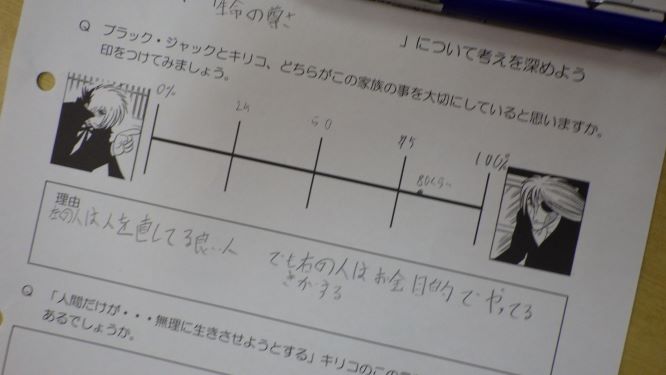 「生命の尊さ
」について考えを深めよう
Q ブラック・ジャックとキリコ、どちらがこの家族の事を大切にしていると思いますか。
印をつけてみましょう。
0% 25 50 75 100%
80くらい
理由
左の人は人を直してる良い人 でも右の人はお金目的でやってる
きがする
Q 「人間だけが・・・無理に生きさせようとする」キリコのこの
あるでしょうか。